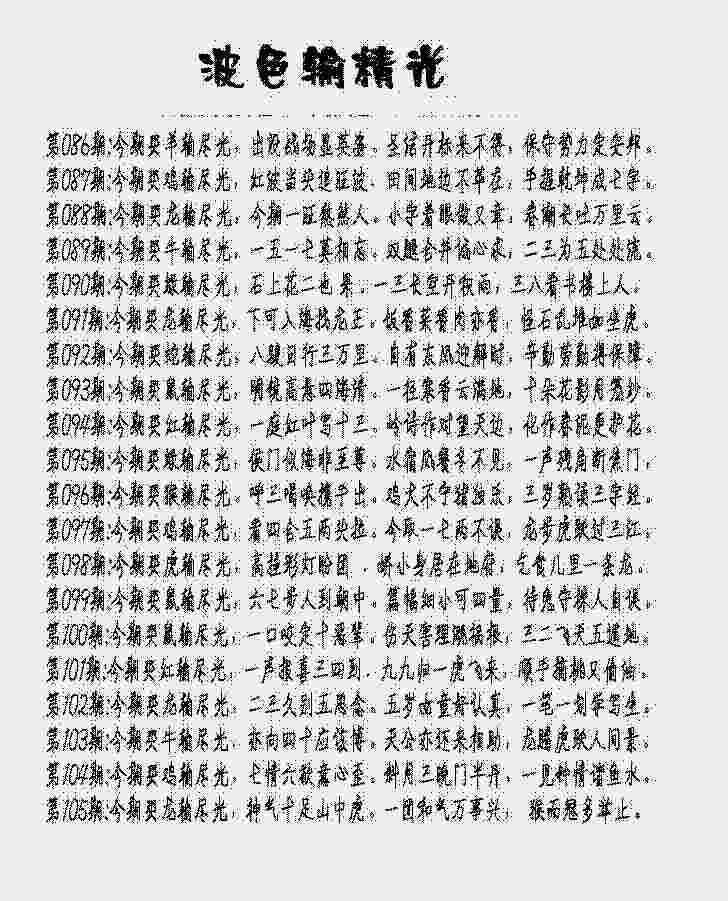 波色输精光
第086期:今期买羊输尽光，出没战场显英姿。圣信丹标来不得，保守势力定安邦。
第087期:今期买鸡输尽光，红波当买追旺波、田间地边不草在，手握乾坤成七字。
第088期:今期买龙输尽光，今期一旺煞煞人。小字着眼微又幸，春潮长吐万里云。
第089期:今期买牛输尽光，一五一七莫相忘。双腿合并偏心求，二三为五处处流。
第090期:今期买 输尽光，石上花二也果，一三长空丹秋雨，三八看书楼上人。
第091期:今期买龙输尽光，下可入海找龙王。饭香菜香肉亦香，怪石乱堆如坐虎。
第092期:今期买蛇输尽光，八骏日行三万里。自有东风迎解时，辛勤劳动得保障。
第093期:今期买鼠输尽光，明镜高悬四海清。一径寒香云满地，十朵花影月笼纱。
第094期:今期买红输尽光，一庭红叶写十三。吟诗作对望天边，化作春泥更护花。
第095期:今期买 输尽光，侯门似海非至尊。水宿风餐冬不见，一声残角断焦门，
第096期:今期买猴输尽光。呼三喝唤携手出。鸡犬不宁猪独乐，三岁熟读三字经。
第097期:今期买鸡输尽光，看四合五两头拉。今取一七两不误，龙步虎跃过三江。
第098期:今期买虎输尽光，高挂彩灯盼团，娇小身居在地府，乞食儿里一条龙。
第099期:今期买鼠输尽光，六七步人到朝中。篇幅细小可四量，待兔守株人自误。
第100期:今期买鼠输尽光，一口咬定十恶辈。伤天害理遭摇报，三二飞天五遁地。
第101期:今期买红输尽光，一声报喜三四到，九九归一虎飞来，顺手摘桃又偷油。
第102期:今期买龙输尽光，二三久到五思念。五岁幼童好认真，一笔一划学写生。
第103期:今期买牛输尽光，亦向四十应该博。天公亦还来相助，龙腾虎跃人间景。
第104期:今期买鸡输尽光，七情六欲意心歪。斜月三晚门半丹，一见种情谱鱼水。
第105期:今期买龙输尽光，神气十足山中虎。一团和气万事兴，猴而冠多举止。